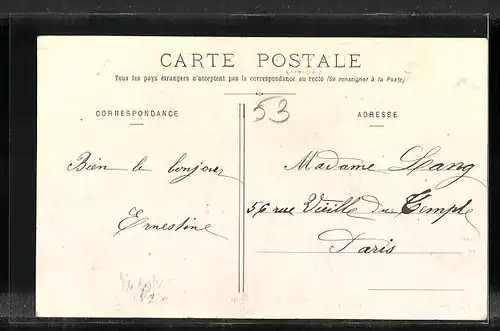 CARTE POSTALE
Tous les pays étrangers n'acceptent pas la correspondance au recto (Se renseigner à la Poste)
53
CORRESPONDANCE
ADRESSE
Bien le bonjour
Ernestine
Madame Lang
56 rue Vieille du Temple
Paris